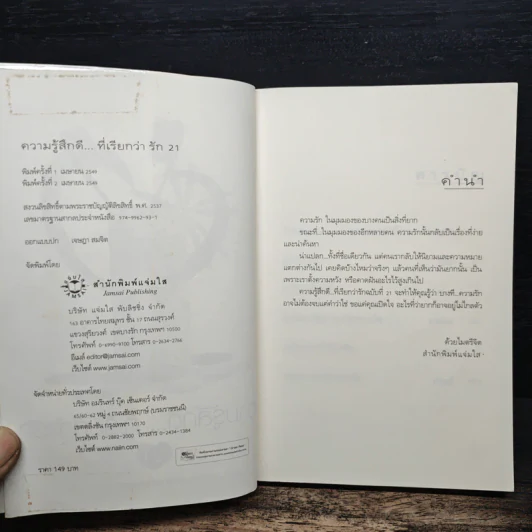 ความรู้สึกดี... ที่เรียกว่า รัก 21
พิมพ์ครั้งที่ 1 เมษายน 2549
พิมพ์ครั้งที่ 2 เมษายน 2549
สงวนลิขสิทธิ์ตามพระราชบัญญัติลิขสิทธิ์ พ.ศ. 2537
เลขมาตรฐานสากลประจำหนังสือ
ออกแบบปก เจษฎา สมจิต
จัดพิมพ์โดย
สำนักพิมพ์แจ่มใส
Jamsai Publishing
บริษัท แจ่มใส พับลิชชิ่ง จำกัด
163 อาคารไทยสมุทร ชั้น 17 ถนนสุรวงศ์
แขวงสุริยวงศ์ เขตบางรัก กรุงเทพฯ
โทรศัพท์ โทรสาร 0-2634-3766
อีเมล์ editor@jamsai.com
เว็บไซต์ www.jamsai.com
จัดจำหน่ายทั่วประเทศโดย
บริษัท อมรินทร์ บุ๊ค เซ็นเตอร์ จำกัด
65/60-62 หมู่ 4 ถนนชัยพฤกษ์ (บรมราชชนนี)
เขตตลิ่งชัน กรุงเทพฯ 10170
โทรศัพท์ 0-2882-2000 โทรสาร 0-2434-1384
เว็บไซต์ www.naiin.com
ราคา 149 บาท
คำนำ
ความรัก ในมุมมองของบางคนเป็นสิ่งที่ยาก
ขณะที่...ในมุมมองของอีกหลายคน ความรักนั้นกลับเป็นเรื่องที่ง่าย
และน่าค้นหา
น่าแปลก...ทั้งที่ชื่อเดียวกัน แต่คนเรากลับให้นิยามและความหมาย
แตกต่างกันไป เคยคิดบ้างไหมว่าจริงๆ แล้วคนที่เห็นว่ามันยากนั้น เป็น
เพราะเราตั้งความหวัง หรือคาดฝันอะไรไว้สูงเกินไป
ความรู้สึกดี...ที่เรียกว่ารักฉบับที่ 21 จะทำให้คุณรู้ว่า บางที...ความรัก
อาจไม่ต้องจบแค่คำว่าใช่ ขอแค่คุณเปิดใจ อะไรที่ว่ายากก็อาจอยู่ไม่ไกลตัว
ด้วยไมตรีจิต
สำนักพิมพ์แจ่มใส